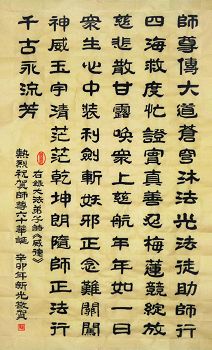 師尊傳大道蒼穹沐法光法徒助師行
四海救度忙證實真善忍梅蓮競綻放
慈悲散甘露喚眾上慈航年年如一日
眾生心中裝利劍斬妖邪正念難關闖
神威玉宇清茫茫乾坤朗隨師正法行
千古永流芳
右錄大法弟子詩《威德》
熱烈祝賀師尊六十華誕 辛卯年新光敬賀